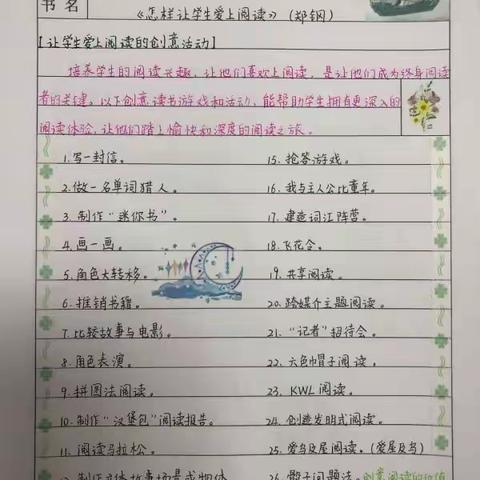 书名 《怎样让学生爱上阅读》(郑钢)
【让学生爱上阅读的创意活动】
培养学生的阅读兴趣,让他们喜欢上阅读,是让他们成为终身阅读
者的关键。以下创意读书游戏和活动,能帮助学生拥有更深入的
阅读体验,让他们踏上愉快和深度的阅读之旅。
1.写一封信。
2.做一名单词猎人。
3.制作“迷你书”。
4.画一画。
5.角色大转移。
6.推销书籍。
7.比较故事与电影。
8.角色表演。
9.拼图法阅读。
10.制作“汉堡包”阅读报告。
11.阅读马拉松。
12.制作立体故事场景或物体
15.抢答游戏。
16.我与主人公比童年。
17.建造词汇阵营。
18.飞花令。
19.共享阅读。
20.跨媒介主题阅读。
21.“记者”招待会。
22.六色帽子阅读。
23.KWL阅读。
24.创造发明式阅读。
25.爱乌及屋阅读。(爱屋及乌)
26.骰子问题法。创意阅读的价值